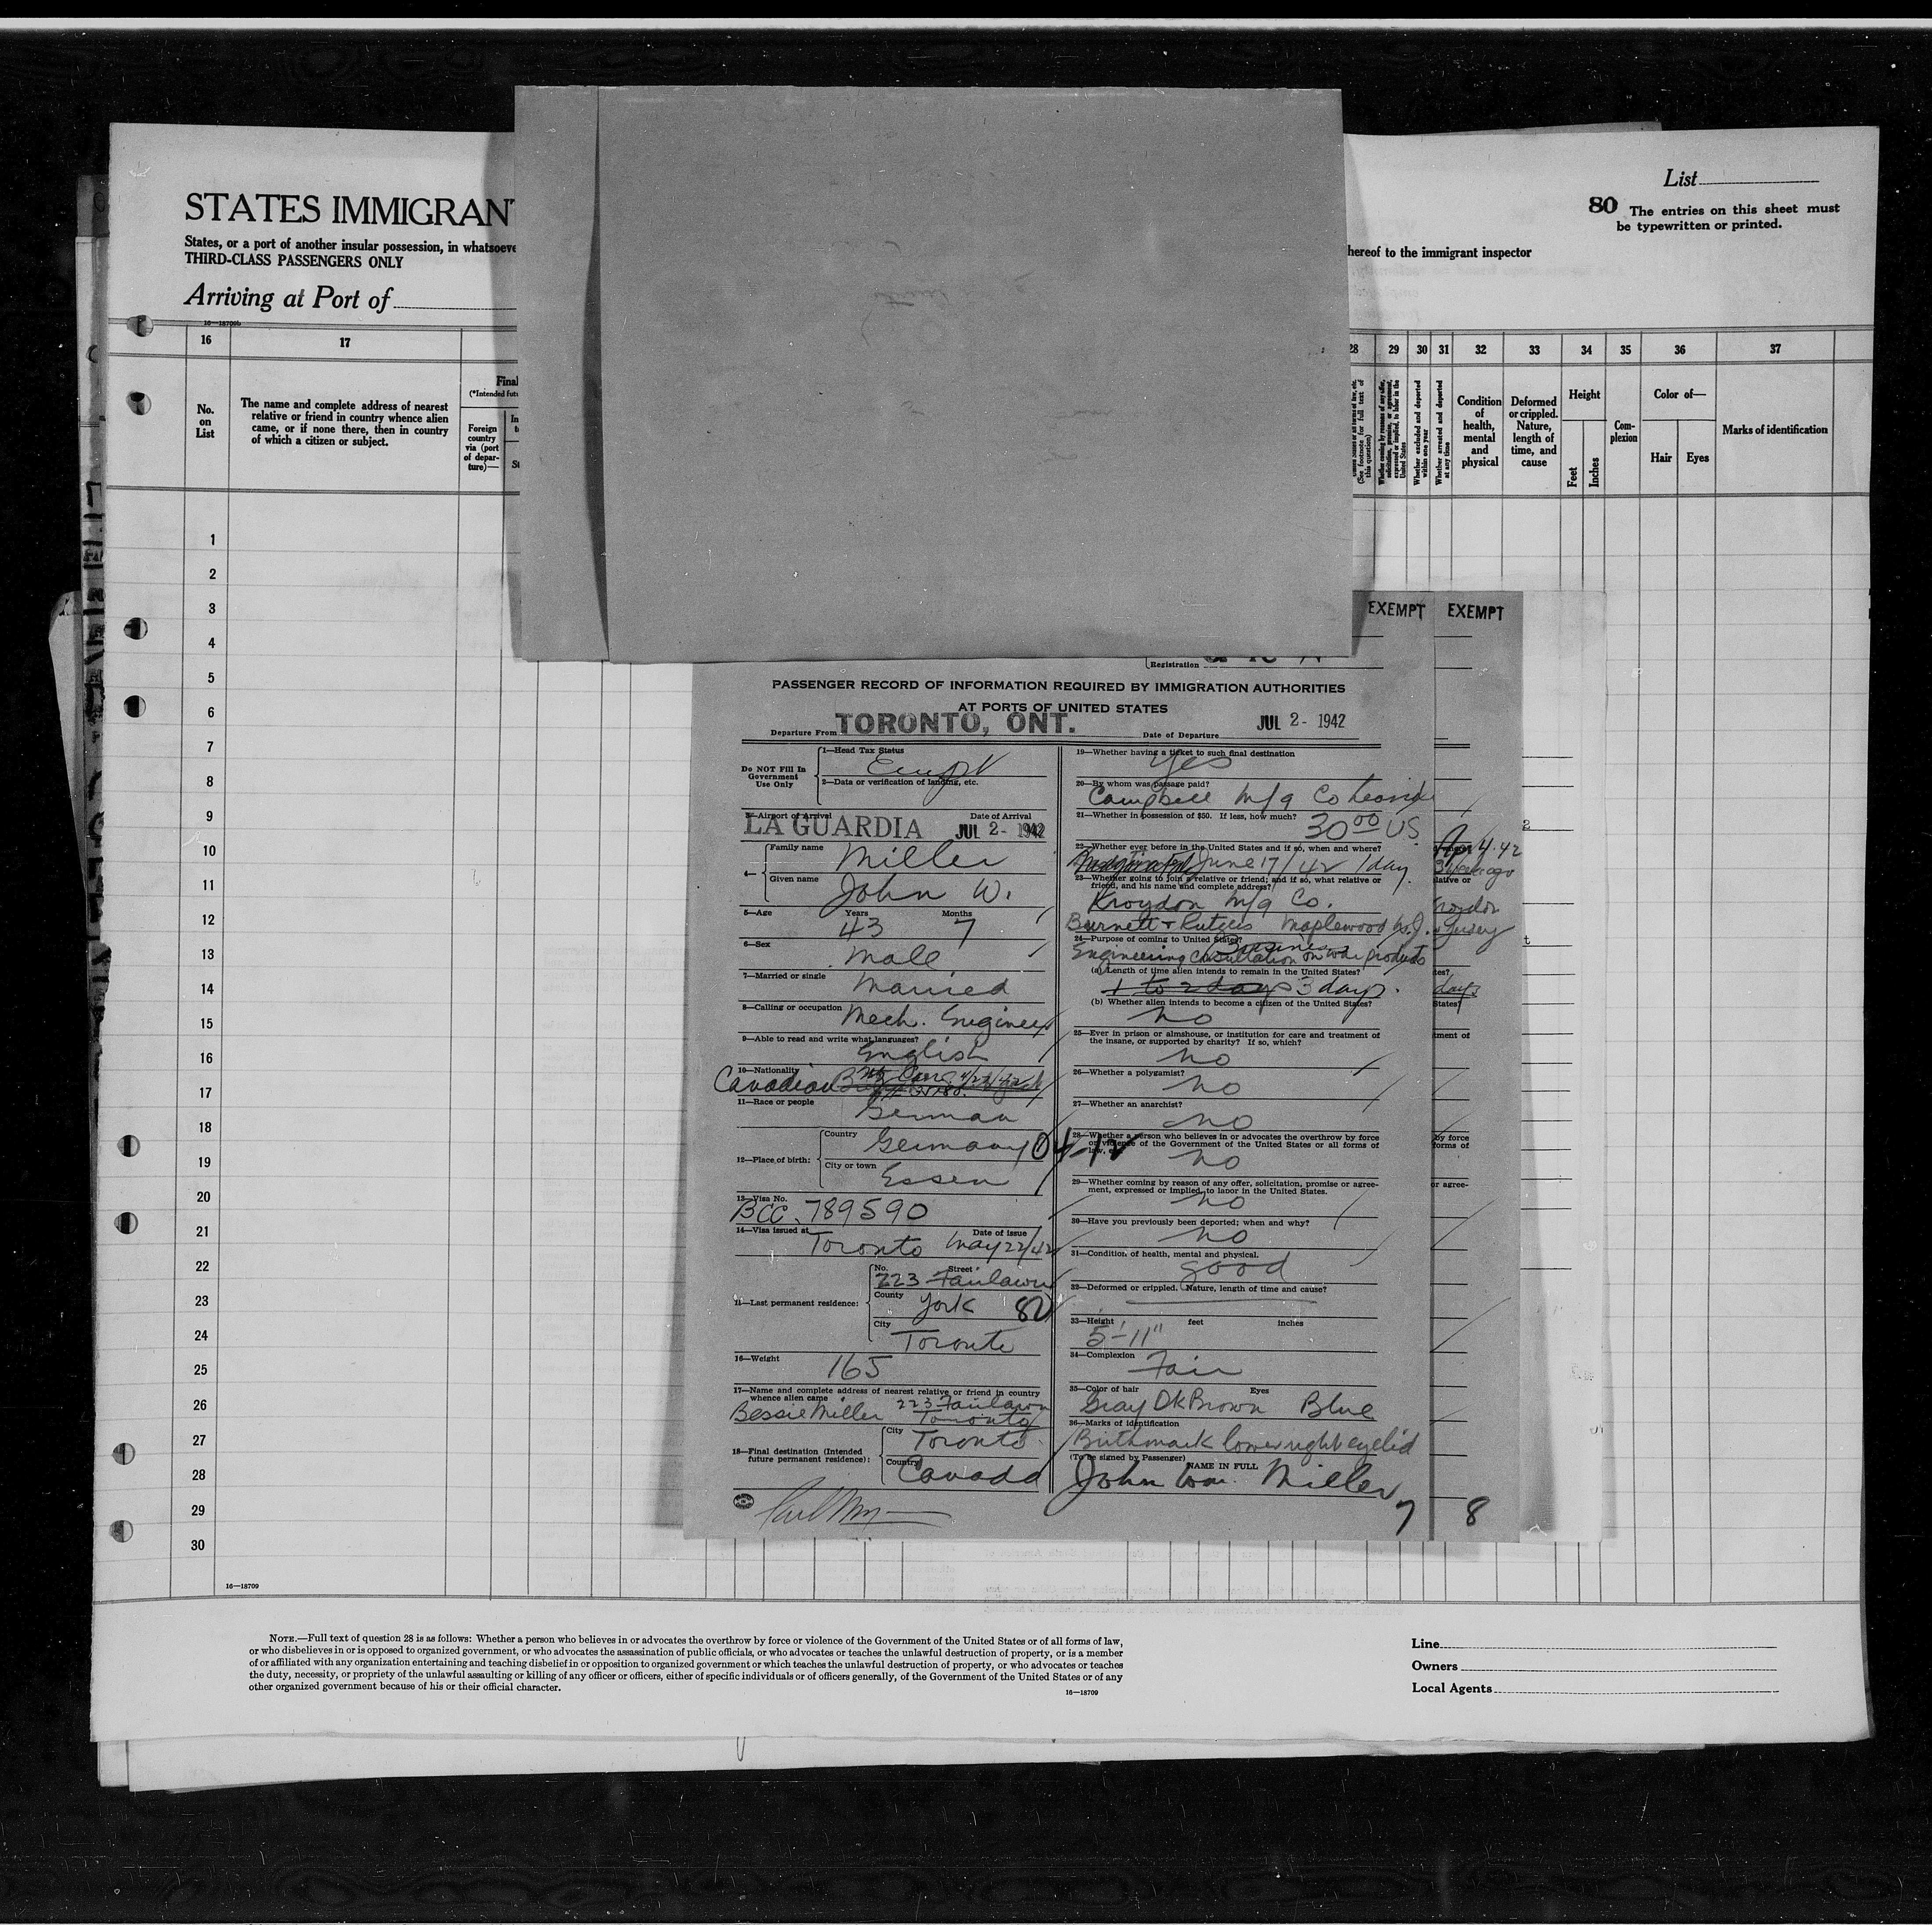 STATES IMMIGRAN
States, or a port of another insular possession, in whatsoeve
THIRD-CLASS PASSENGERS ONLY
Arriving at Port of
List
80 The entries on this sheet must
be typewritten or printed.
hereof to the immigrant inspector
16—18709b
16 17 28 29 30 31 32 33 34 35 36 37
No. on List
The name and complete address of nearest
relative or friend in country whence alien
came, or if none there, then in country
of which a citizen or subject.
Final
(*Intended futu
Foreign
country
via (port
of depar-
ture)—
(See footnote for full text of
this question)
Whether coming by reason of any offer,
solicitation, promise, or agreement,
expressed or implied, to labor in the
United States
Whether excluded and deported
within one year
Whether arrested and deported
at any time
Condition
of
health,
mental
and
physical
Deformed
or crippled.
Nature,
length of
time, and
cause
Height
Feet
Inches
Com-
plexion
Color of—
Hair
Eyes
Marks of identification
1
2
3
4
5
6
7
8
9
10
11
12
13
14
15
16
17
18
19
20
21
22
23
24
25
26
27
28
29
30
16—18709
EXEMPT
EXEMPT
Registration
PASSENGER RECORD OF INFORMATION REQUIRED BY IMMIGRATION AUTHORITIES
AT PORTS OF UNITED STATES
Departure From TORONTO, ONT.
Date of Departure JUL 2 - 1942
Do NOT Fill In
Government
Use Only
1—Head Tax Status
2—Data or verification of landing, etc.
3—Airport of Arrival LA GUARDIA
Date of Arrival JUL 2 - 1942
4—
Family name Miller
Given name John W.
5—Age Years 43 Months 7
6—Sex Male
7—Married or single Married
8—Calling or occupation Mech. Engineer
9—Able to read and write what languages? English
10—Nationality Canadian
11—Race or people German
12—Place of birth:
Country Germany
04-12
City or town Essen
13—Visa No. BCC. 789590
14—Visa issued at Toronto Date of Issue May 22/42
15—Last permanent residence:
No. 223 Street Fairlawn
County York 82
City Toronto
16—Weight 165
17—Name and complete address of nearest relative or friend in country
whence alien came
Bessie Miller 223 Fairlawn
Toronto
18—Final destination (Intended
future permanent residence):
City Toronto
Country Canada
19—Whether having a ticket to such final destination
Yes
20—By whom was passage paid?
Campbell Mfg Co
21—Whether in possession of $50. If less, how much? 30 00 US
22—Whether ever before in the United States and if so, when and where?
June 17/42 1 day.
23—Whether going to join a relative or friend; and if so, what relative or
friend, and his name and complete address?
Kroydon Mfg Co.
Burnett + Rutgers Maplewood N.J.
24—Purpose of coming to United States? Business
Engineering Consultation on war products
(a) Length of time alien intends to remain in the United States?
1 to 2 days 3 days.
(b) Whether alien intends to become a citizen of the United States?
No
25—Ever in prison or almshouse, or institution for care and treatment of
the insane, or supported by charity? If so, which?
No
26—Whether a polygamist?
No
27—Whether an anarchist?
No
28—Whether a person who believes in or advocates the overthrow by force
or violence of the Government of the United States or all forms of
law, etc.
No
29—Whether coming by reason of any offer, solicitation, promise or agree-
ment, expressed or implied, to labor in the United States.
No
30—Have you previously been deported; when and why?
No
31—Condition of health, mental and physical.
good
32—Deformed or crippled. Nature, length of time and cause?
33—Height feet inches
5'-11"
34—Complexion
Fair
35—Color of hair Eyes
Gray Dk Brown Blue
36—Marks of identification
Birthmark lower right eyelid
(To be signed by Passenger)
NAME IN FULL
John Wm. Miller
7
8
Apr 4.42
lative or
Jersey
tes?
days
States?
tment of
by force
forms of
or agree-
NOTE.—Full text of question 28 is as follows: Whether a person who believes in or advocates the overthrow by force or violence of the Government of the United States or of all forms of law,
or who disbelieves in or is opposed to organized government, or who advocates the assassination of public officials, or who advocates or teaches the unlawful destruction of property, or is a member
of or affiliated with any organization entertaining and teaching disbelief in or opposition to organized government or which teaches the unlawful destruction of property, or who advocates or teaches
the duty, necessity, or propriety of the unlawful assaulting or killing of any officer or officers, either of specific individuals or of officers generally, of the Government of the United States or of any
other organized government because of his or their official character.
16—18709
Line
Owners
Local Agents